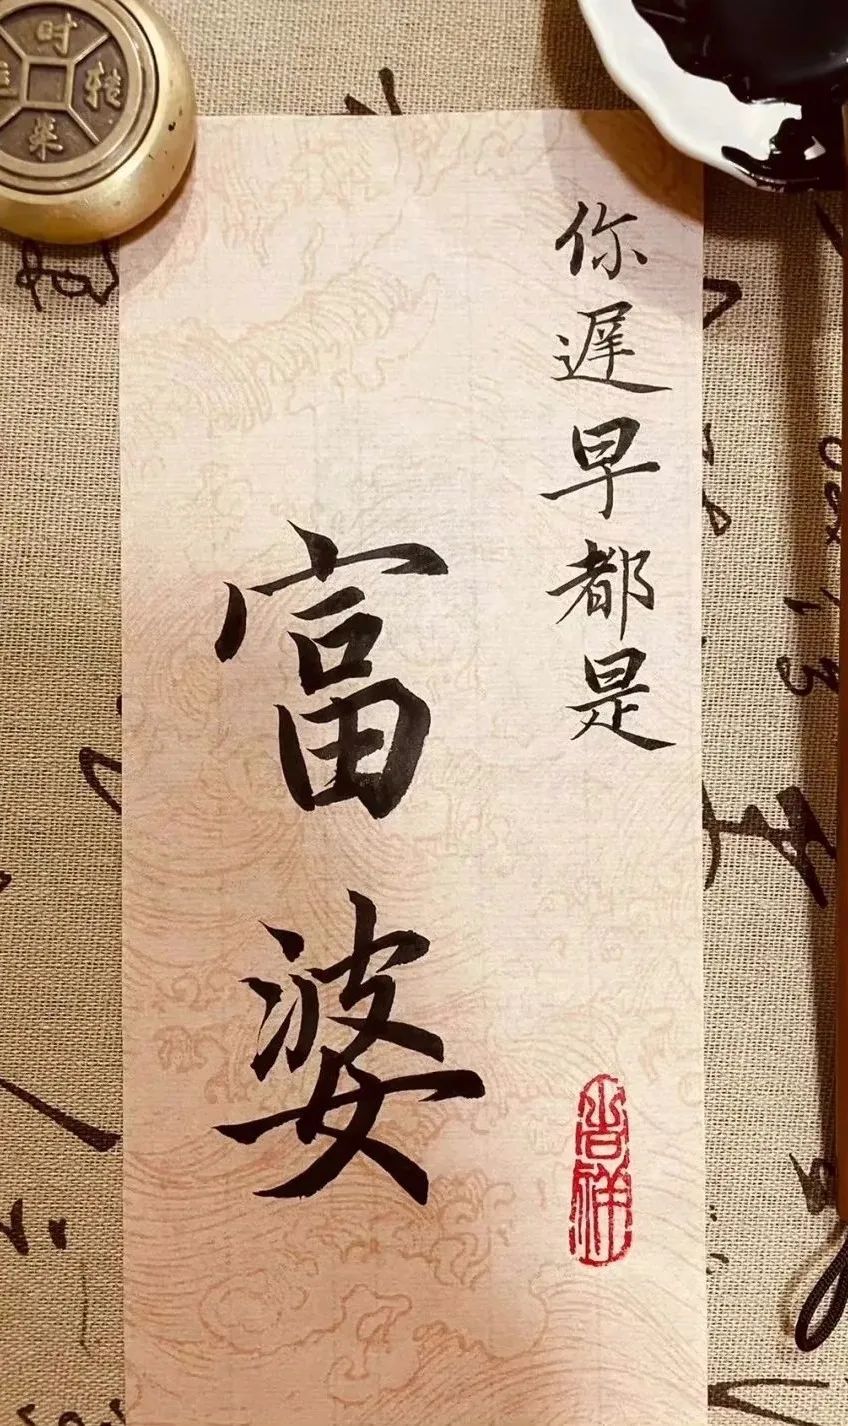 你遲早都是
富婆
吉祥
时
转
来